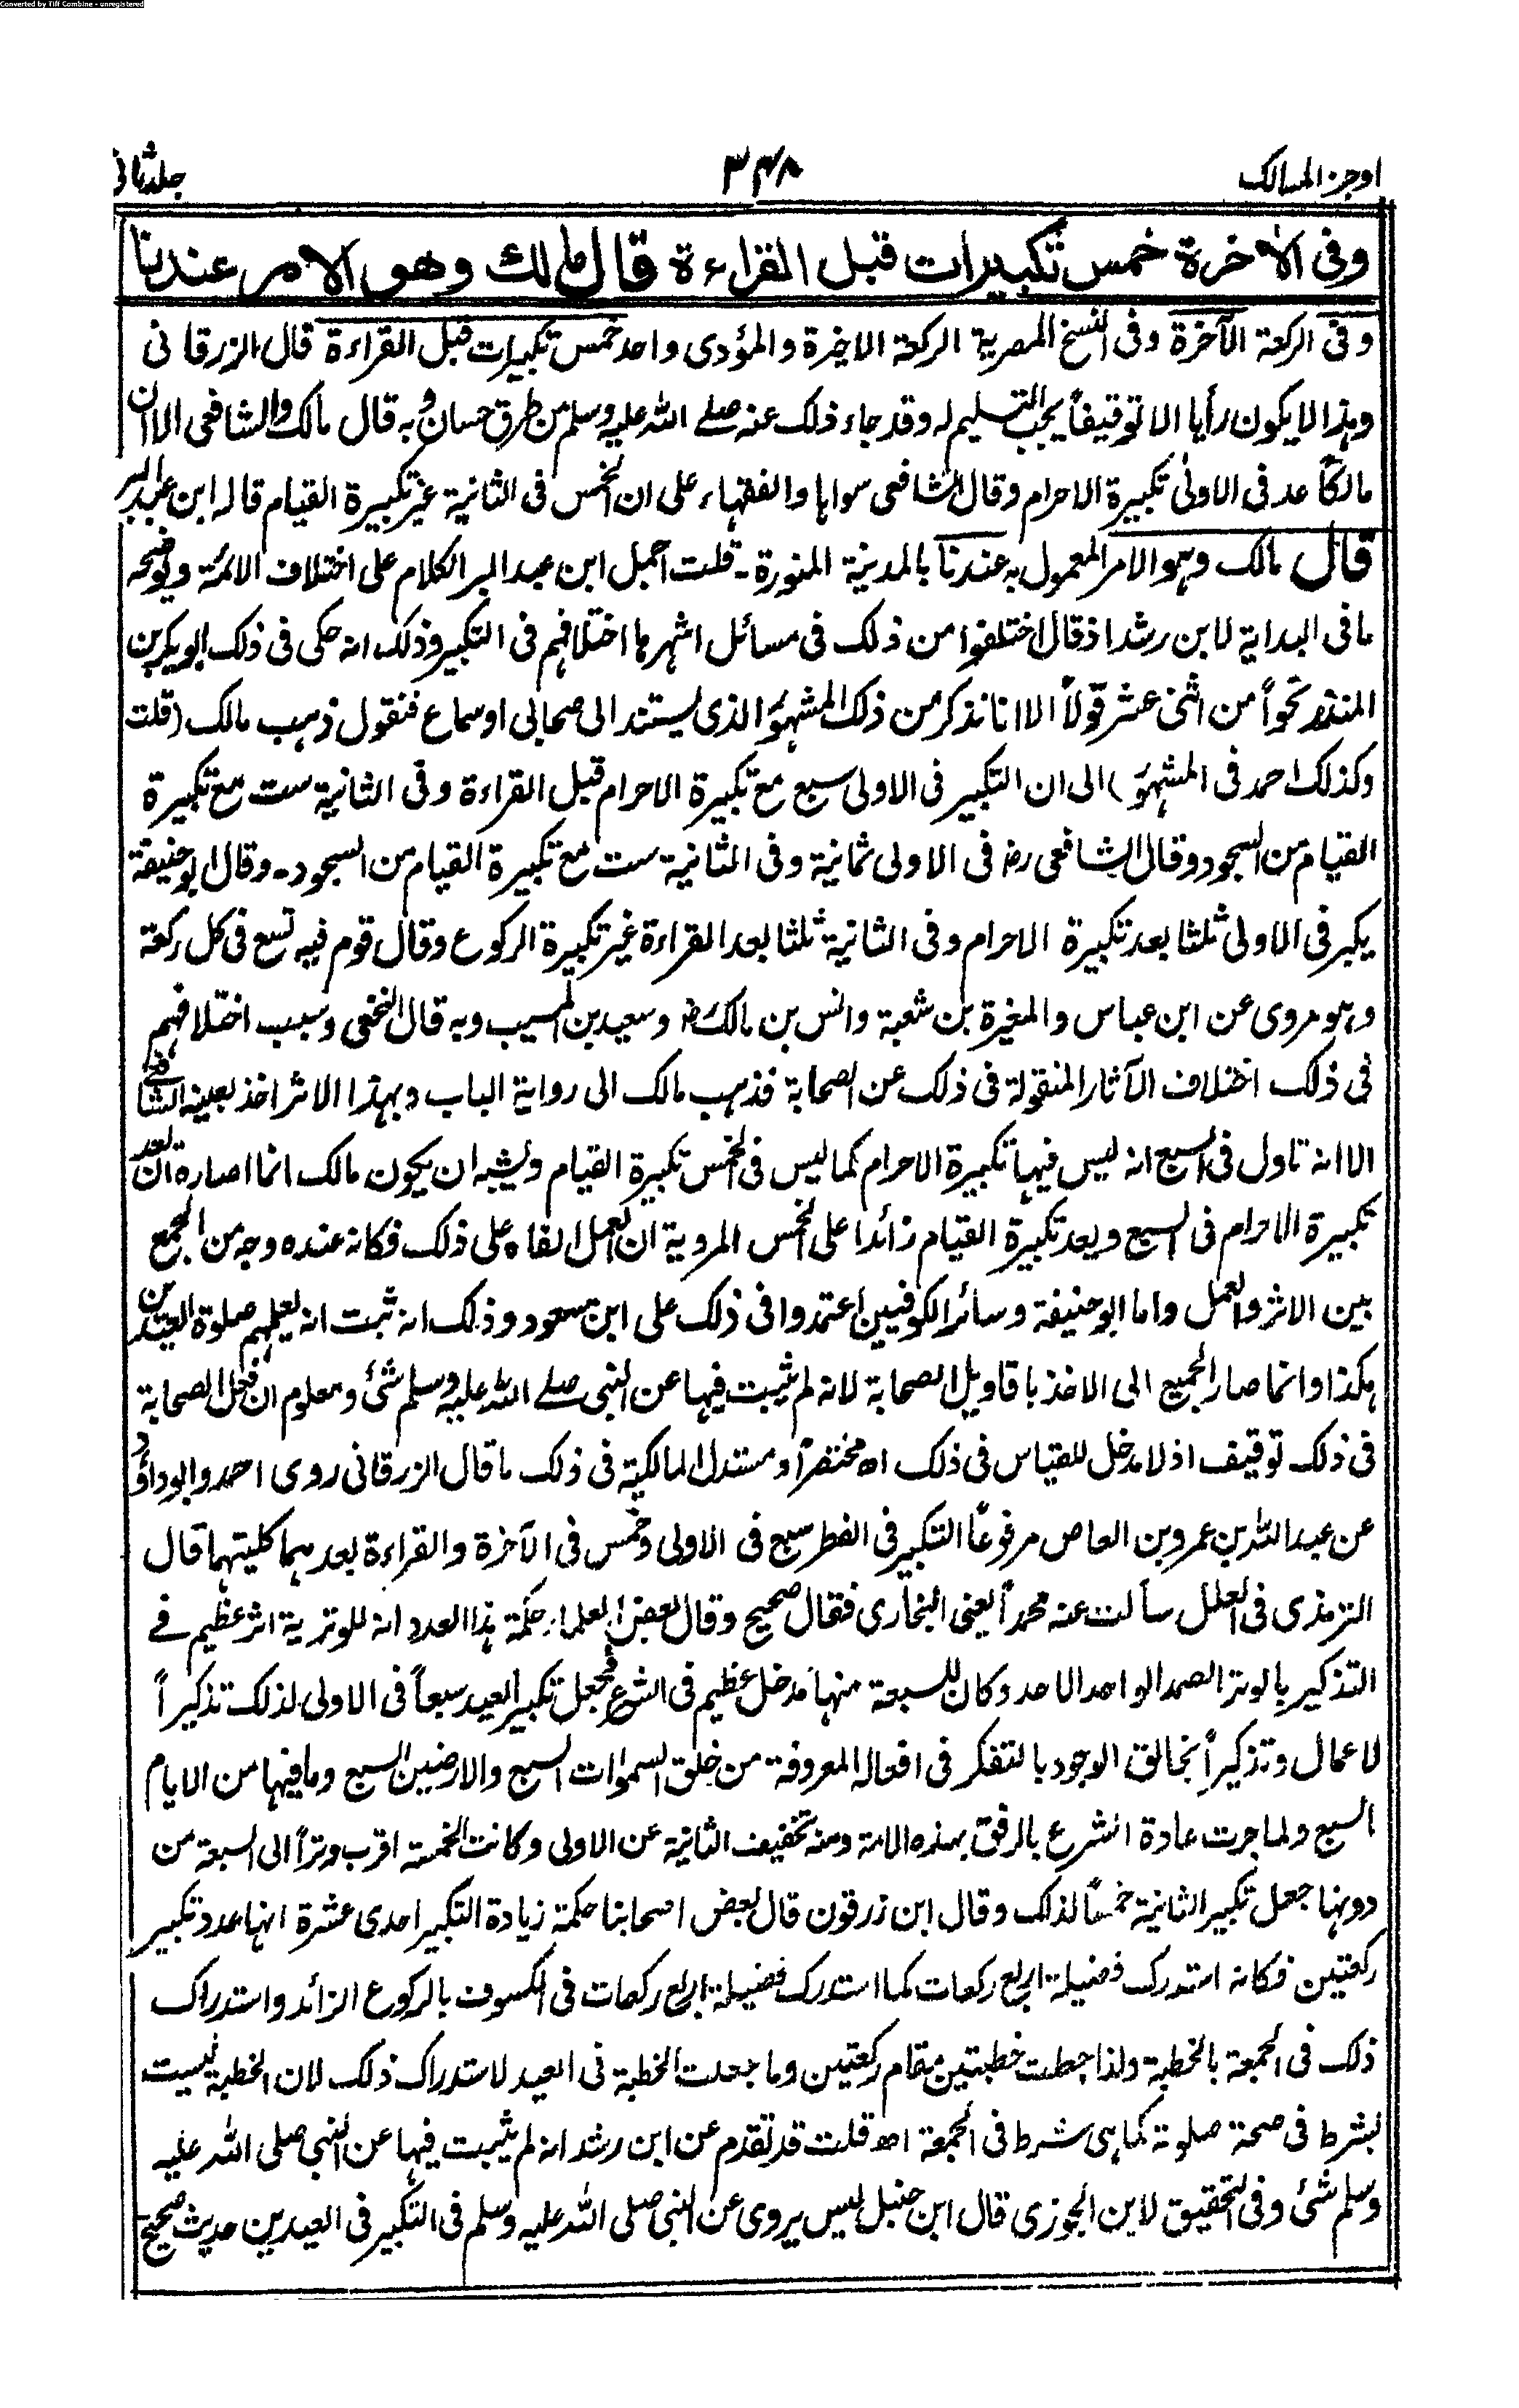 Converted by Tiff Combine - unregistered
اوجز المسالك
٣٤٨
جلد ثانی
وفى الآخرة خمس تكبيرات قبل القراءة قال مالك وهو الامر عندنا
وفى الركعة الآخرة وفى النسخ المصرية الركعة الاخيرة والمؤدى واحد خمس تكبيرات قبل القراءة قال الزرقانى
وهذا لا يكون رأيا الا توقيفاً يجب التسليم له وقد جاء ذلك عنه صلے الله عليه وسلم من طرق حسان وبه قال مالك والشافعى الا ان
مالكاً عد فى الاولىٰ تكبيرة الاحرام وقال الشافعى سواها والفقهاء على ان الخمس فى الثانية غير تكبيرة القيام قاله ابن عبد البر
قال مالك وهو الامر المعمول به عندنا بالمدينة المنورة۔ قلت اجمل ابن عبد البر الكلام على اختلاف الائمة ويوضحه
ما فى البداية لابن رشد اذ قال اختلفوا من ذلك فى مسائل اشهرها اختلافهم فى التكبير وذلك انه حكى فى ذلك ابو بكر بن
المنذر نحواً من اثنى عشر قولاً الا انا نذكر من ذلك المشهور الذى يستند الى صحابى او سماع فنقول ذهب مالك (قلت
وكذلك احمد فى المشهور) الى ان التكبير فى الاولى سبع مع تكبيرة الاحرام قبل القراءة وفى الثانية ست مع تكبيرة
القيام من السجود وقال الشافعى رض فى الاولى ثمانية وفى الثانية ست مع تكبيرة القيام من السجود۔ وقال ابو حنيفة
يكبر فى الاولى ثلثا بعد تكبيرة الاحرام وفى الثانية ثلثا بعد القراءة غير تكبيرة الركوع وقال قوم فيه تسع فى كل ركعة
وهو مروى عن ابن عباس والمغيرة بن شعبة وانس بن مالك رض وسعيد بن المسيب وبه قال النخعى وسبب اختلافهم
فى ذلك اختلاف الآثار المنقولة فى ذلك عن الصحابة فذهب مالك الى رواية الباب وبهذا الاثر اخذ بعينه الشافعے
الا انه تاول فى السبع انه ليس فيها تكبيرة الاحرام كما ليس فى الخمس تكبيرة القيام ويشبه ان يكون مالك انما اصاره ان يعد
تكبيرة الاحرام فى السبع ويعد تكبيرة القيام زائدا على الخمس المروية ان العمل الفاه على ذلك فكانه عنده وجه من الجمع
بين الاثر والعمل واما ابو حنيفة وسائر الكوفيين اعتمدوا فى ذلك على ابن مسعود وذلك انه ثبت انه يعلمهم صلوة العيدين
هكذا وانما صار الجميع الى الاخذ باقاويل الصحابة لانه لم يثبت فيها عن النبى صلے الله عليه وسلم شئ ومعلوم ان فعل الصحابة
فى ذلك توقيف اذ لا مدخل للقياس فى ذلك اه مختصراً ومستدل المالكية فى ذلك ما قال الزرقانى روى احمد وابو داؤد
عن عبد الله بن عمرو بن العاص مرفوعاً التكبير فى الفطر سبع فى الاولى وخمس فى الآخرة والقراءة بعد هما كلتيهما قال
الترمذى فى العلل سألت عنه محمداً يعنى البخارى فقال صحيح وقال بعض العلماء حكمة هذا العدد انه للوترية اثر عظيم فے
التذكير بالوتر الصمد الواحد الاحد وكان للسبعة منها مدخل عظيم فى الشرع فجعل تكبير العيد سبعاً فى الاولى لذلك تذكيراً
لاعمال وتذكيراً بخالق الوجود بالتفكر فى افعاله المعروفة من خلق السموات السبع والارضين السبع وما فيها من الايام
السبع ولما جرت عادة الشرع بالرفق بهذه الامة ومنه تخفيف الثانية عن الاولى وكانت الخمسة اقرب وتراً الى السبعة من
دونها جعل تكبير الثانية خمساً لذلك وقال ابن زرقون قال بعض اصحابنا حكمة زيادة التكبير احدى عشرة انها عدد تكبير
ركعتين فكانه استدرك فضيلة اربع ركعات كما استدرك فضيلة اربع ركعات فى الكسوف بالركوع الزائد واستدراك
ذلك فى الجمعة بالخطبة ولذا جعلت خطبتين مقام ركعتين وما جعلت الخطبة فى العيد لاستدراك ذلك لان الخطبة ليست
بشرط فى صحة صلوته كما هى شرط فى الجمعة اه قلت قد تقدم عن ابن رشد انه لم يثبت فيها عن النبى صلى الله عليه
وسلم شئ وفى التحقيق لابن الجوزى قال ابن حنبل ليس يروى عن النبى صلى الله عليه وسلم فى التكبير فى العيدين حديث صحيح